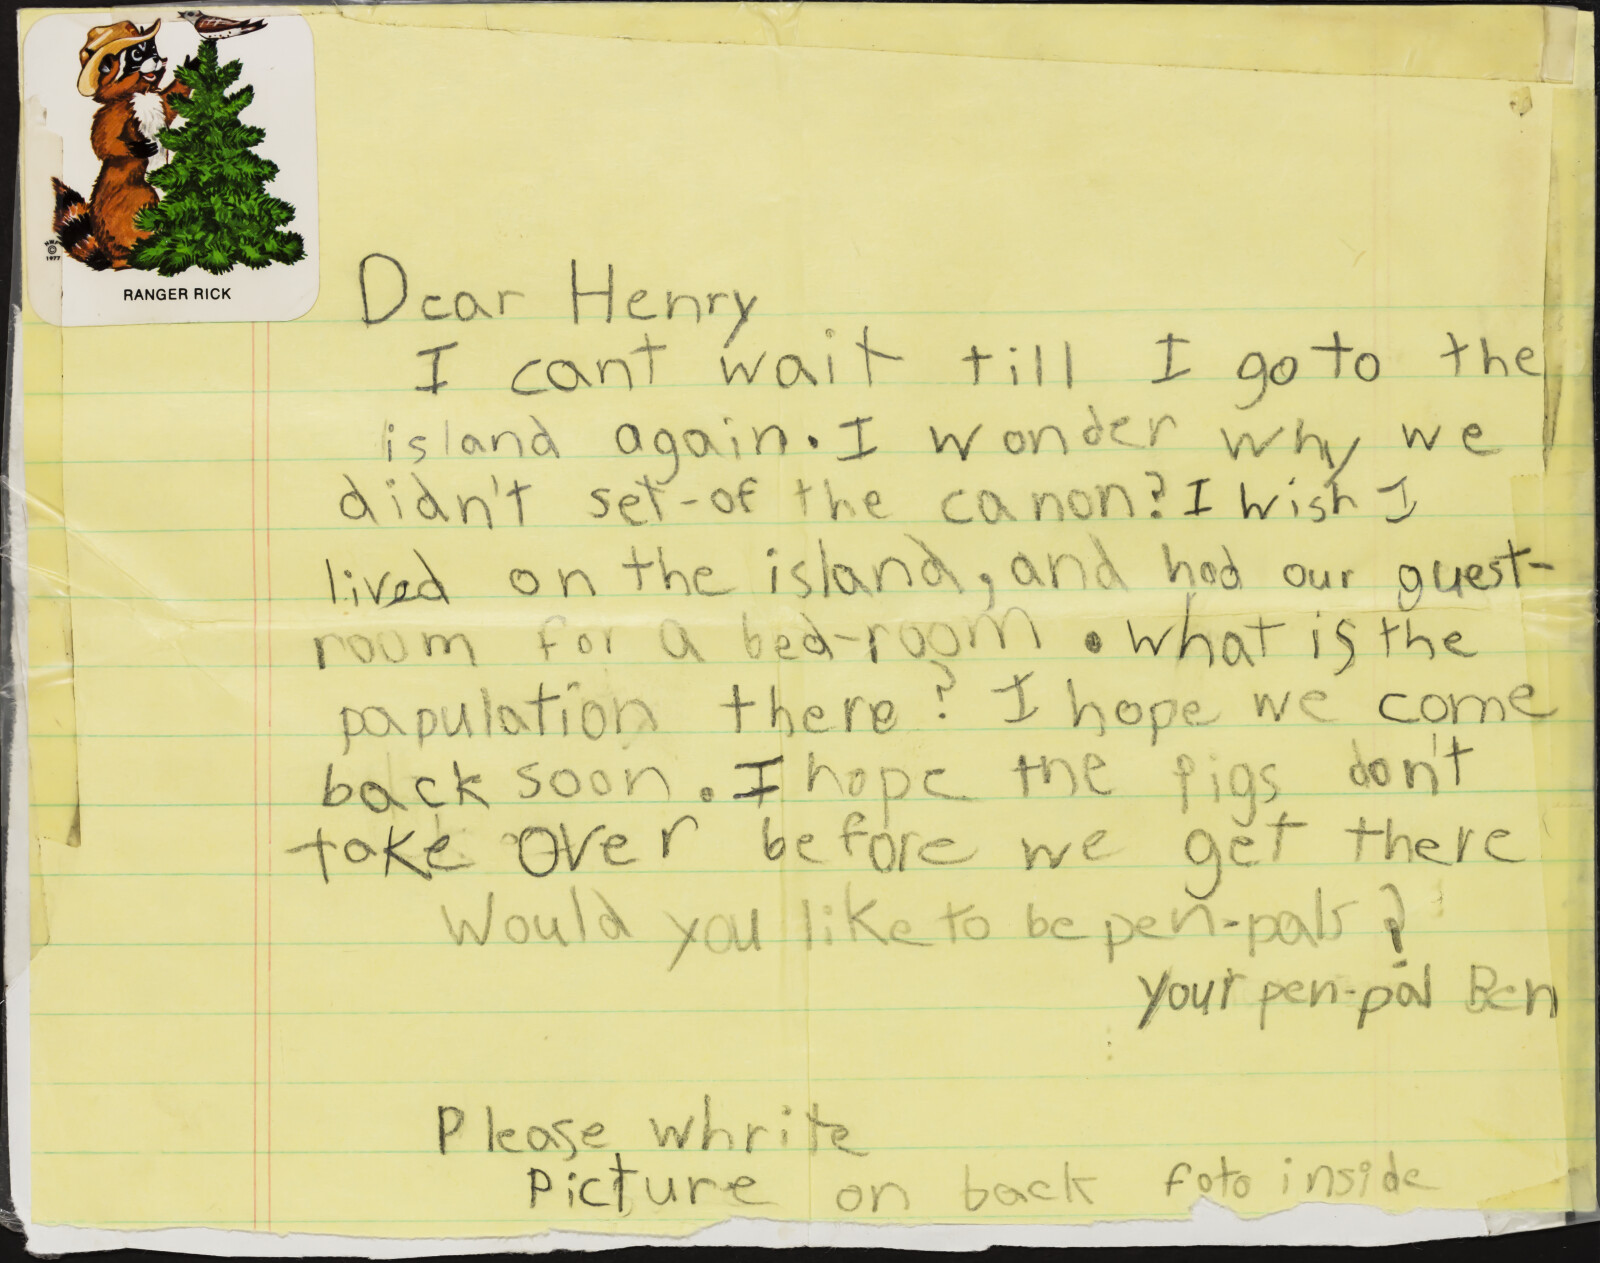 NWF
©
1977
RANGER RICK
Dear Henry
I cant wait till I go to the
island again. I wonder why we
didn't set-of the canon? I wish I
lived on the island, and had our guest-
room for a bed-room. what is the
papulation there? I hope we come
back soon. I hope the pigs don't
take over before we get there
Would you like to be pen-pals?
your pen-pal Ben
Please whrite
Picture on back foto inside